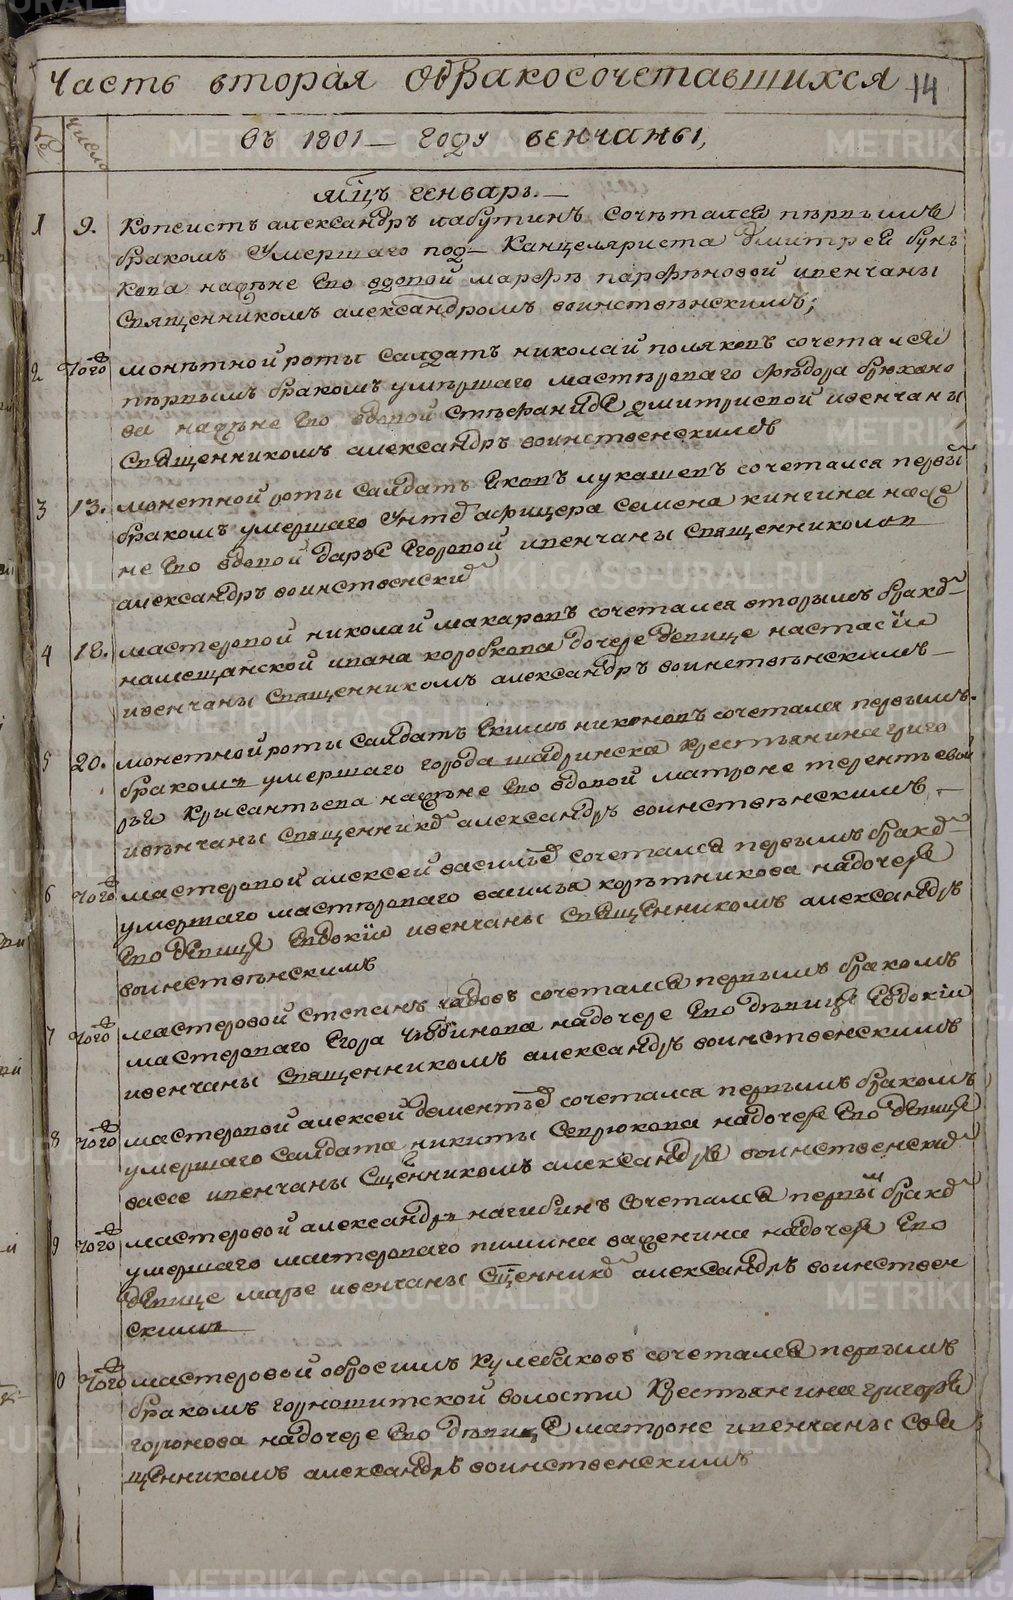 Часть вторая обракосочетавшихся 14
№ число
въ 1801 – году венчаны,
мц̃ъ генварь. –
1 9. Копеистъ александръ лабутинъ сочѣтался пѣрвымъ
бракомъ умершаго под– Канцеляриста дмитрей
на женѣ ево вдовой марфѣ парфѣновой ивенчаны
Священникомъ александромъ воинствѣнскимъ;
2 Того монѣтной роты салдатъ николай поляковъ сочетался
пѣрвымъ бракомъ умѣршаго мастѣроваго фѣдора брюхано
ва на женѣ ево вдовой стѣфаниде дмитриевой ивенчаны
Священникомъ александръ воинственскимъ
3 13. монетной роты салдатъ Яковъ лукашевъ сочетался первы
бракомъ умершаго унте афицера семена кингина на же
не ево вдовой дарье Егоровой ивенчаны священникомъ
александръ воинственски
4 18. мастеровой николай макаровъ сочетался вторымъ брако
на мещанской ивана коробкова дочере девице настасiи
ивенчаны священникомъ александръ воинствѣнскимъ –
5 20. монетной роты салдатъ Екимъ никоновъ сочетался первымъ
бракомъ умершаго города шадринска крестьянина григо
рья хрысантьева на женѣ ево вдовой матроне терентьевой
ивѣнчаны священнико александръ воинствѣнскимъ –
6 того мастеровой алексей василье сочетался первымъ брако
умершаго мастѣроваго василья корѣтникова на дочере
ево девице евдокiи ивенчаны священникомъ александръ
воинствѣнскимъ
7 того мастеровой степанъ чадовъ сочетался первымъ бракомъ
мастероваго Егора чюдинова на дочере ево дѣвице Евдокiи
ивенчаны священникомъ александръ воинственскимъ
8 того мастеровой алексей деменьте сочетался первымъ бракомъ
умершаго салдата никиты севрюкова на дочере ево девице
вассе ивенчаны сщенникомъ александръ воинственски
9 того мастеровой александръ нагибинъ сочетался первы брако
умершаго мастероваго пимина важенина на дочере ево
девице марье ивенчаны сщеннико александръ воинствен
скимъ
10 того мастеровой обросимъ кулебяковъ сочетался первымъ
бракомъ горношитской волости крестьянина григорья
горюнова на дочере ево дѣвице матроне ивенчаны свя
щенникомъ александръ воинственскимъ
METRIKI.GASO-URAL.RU